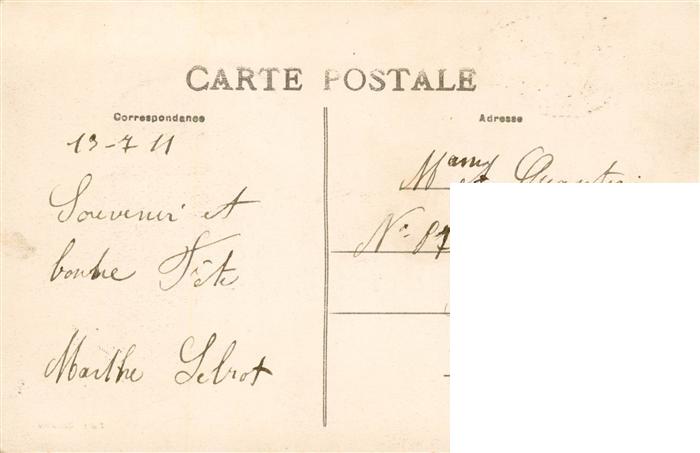 CARTE POSTALE
Correspondance
13-7 11
Souvenir et
bonne Fête
Marthe Lebrot
Adresse
No 87